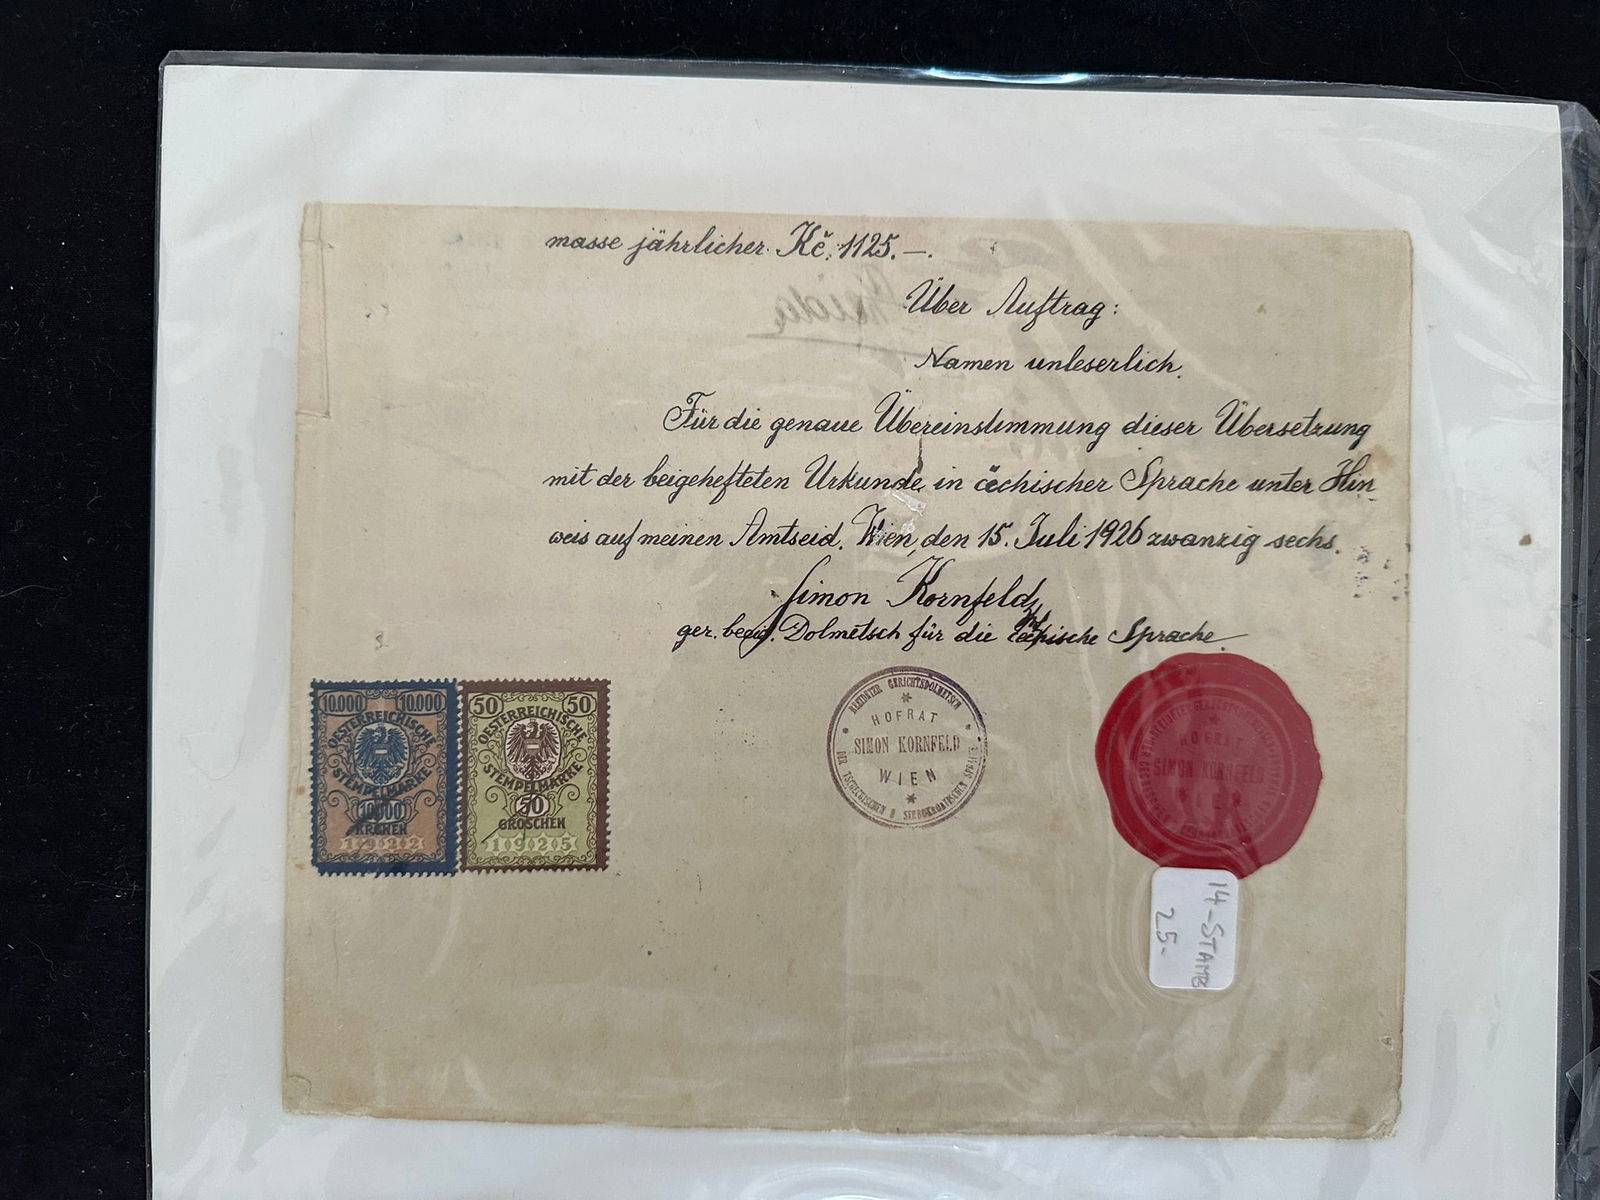 masse jährlicher Kč. 1125.—.
Über Auftrag:
Namen unleserlich.
Für die genaue Übereinstimmung dieser Übersetzung
mit der beigehefteten Urkunde in čechischer Sprache unter Hin
weis auf meinen Amtseid. Wien, den 15. Juli 1926 zwanzig sechs.
Simon Kornfeld
ger. beeid. Dolmetsch für die čechische Sprache.
10.000 10.000
OESTERREICHISCHE
STEMPELMARKE
10000
KRONEN
1922
50 50
OESTERREICHISCHE
STEMPELMARKE
50
GROSCHEN
1925
BEEIDETER GERICHTSDOLMETSCH
HOFRAT
SIMON KORNFELD
WIEN
DER TSCHECHISCHEN U SERBOKROATISCHEN SPRACHE
HOFRAT
SIMON KORNFELD
14-STAMP
25-